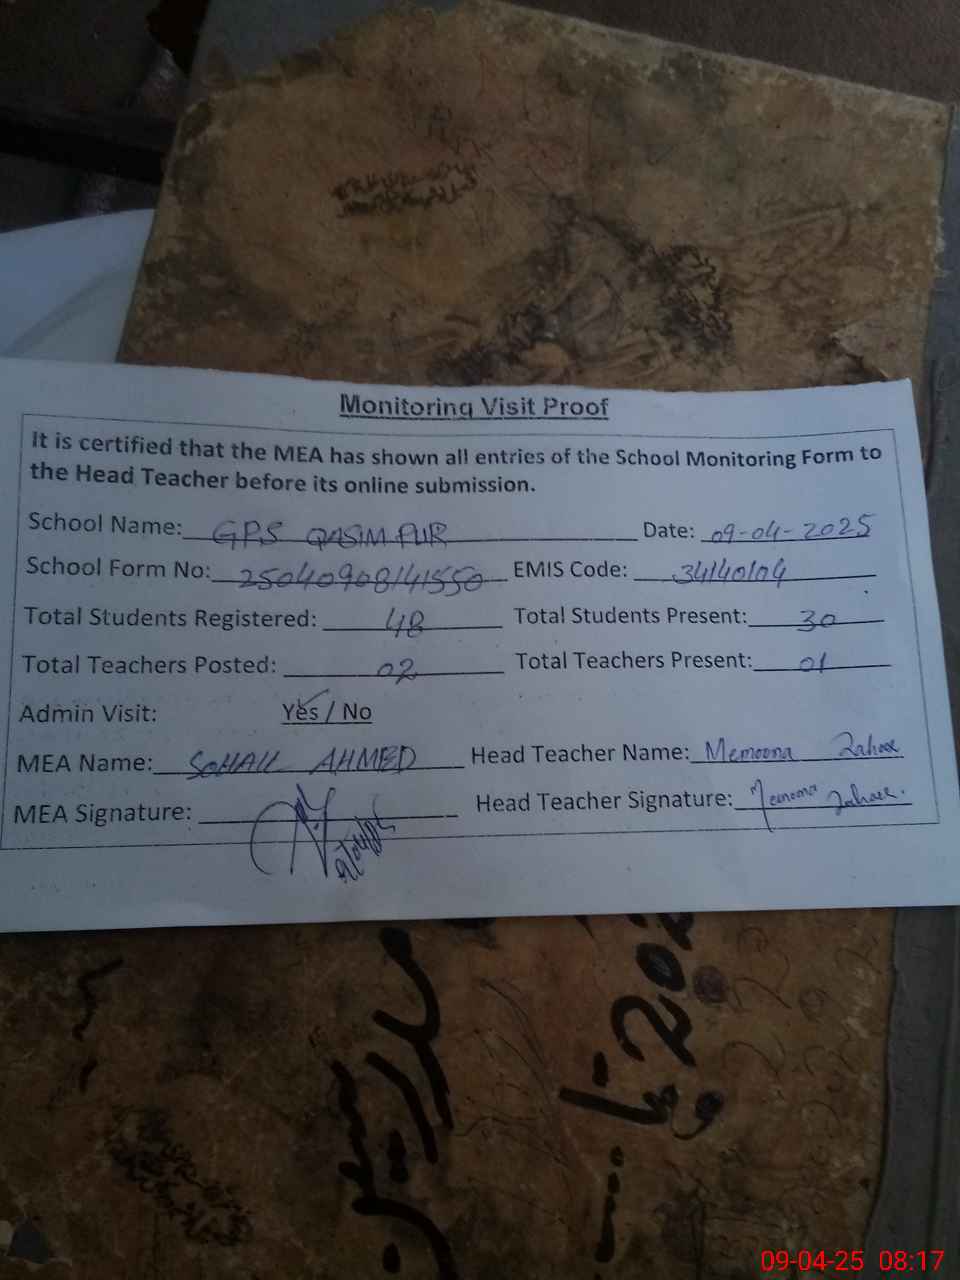 Monitoring Visit Proof
It is certified that the MEA has shown all entries of the School Monitoring Form to
the Head Teacher before its online submission.
School Name: GPS QASIM PUR Date: 09-04-2025
School Form No: 25040908141550 EMIS Code: 34140104
Total Students Registered: 48 Total Students Present: 30
Total Teachers Posted: 02 Total Teachers Present: 01
Admin Visit: Yes / No
MEA Name: SOHAIL AHMED Head Teacher Name: Memoona Zahra
MEA Signature: Head Teacher Signature: Memoona Zahra.
09-04-25 08:17